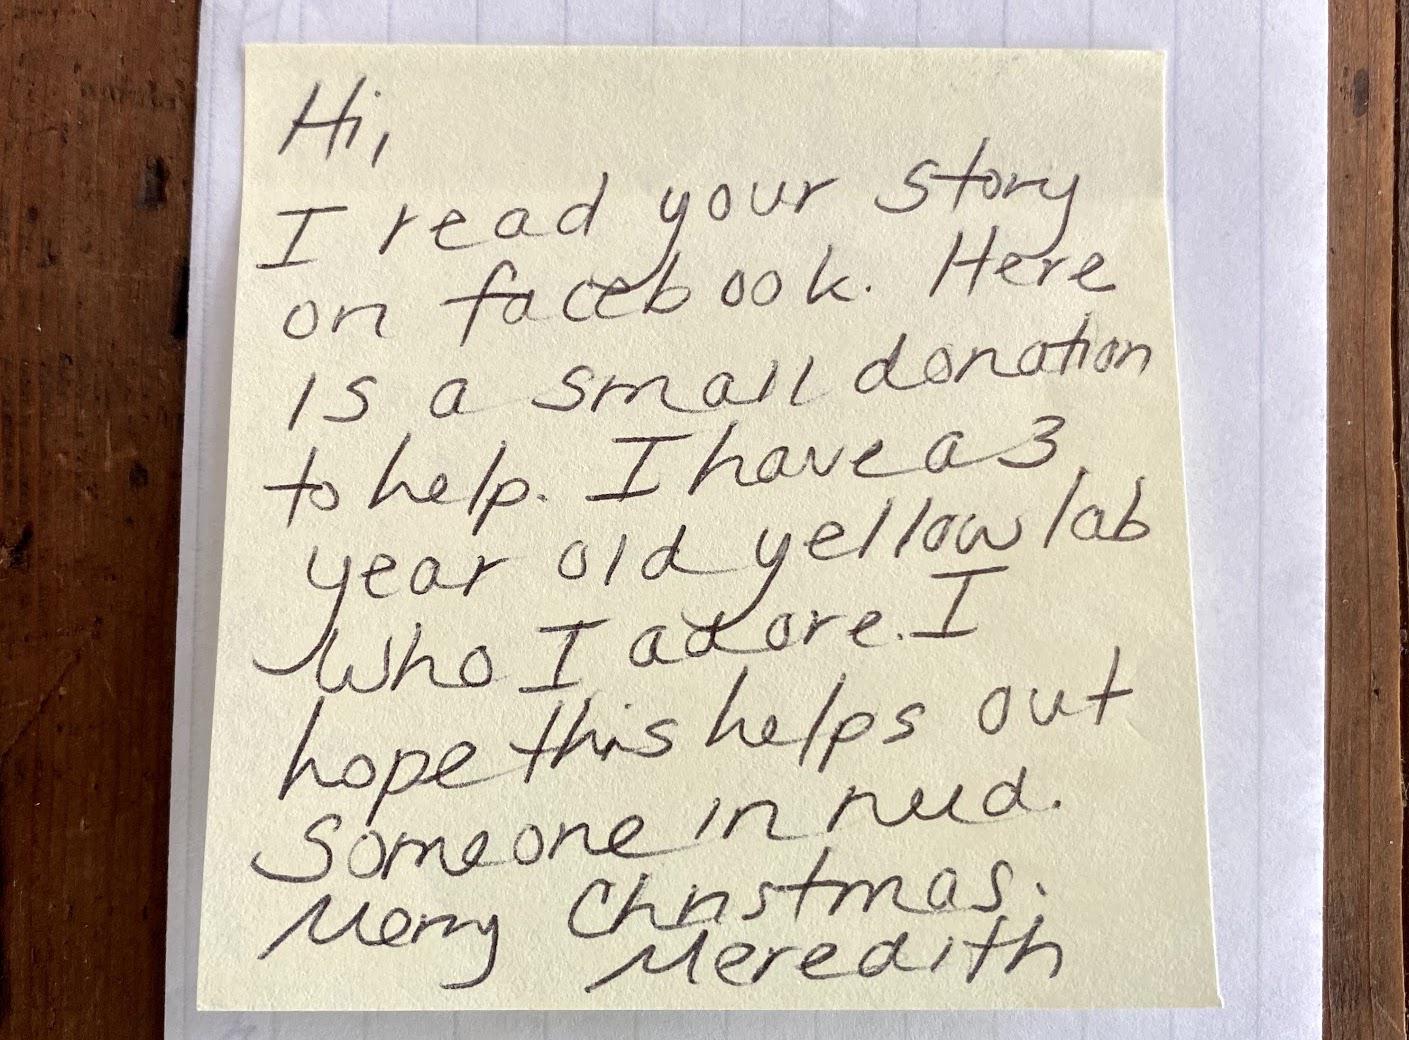 Hi,
I read your story
on facebook. Here
is a small donation
to help. I have a 3
year old yellow lab
who I adore. I
hope this helps out
someone in need.
Merry Christmas.
Meredith